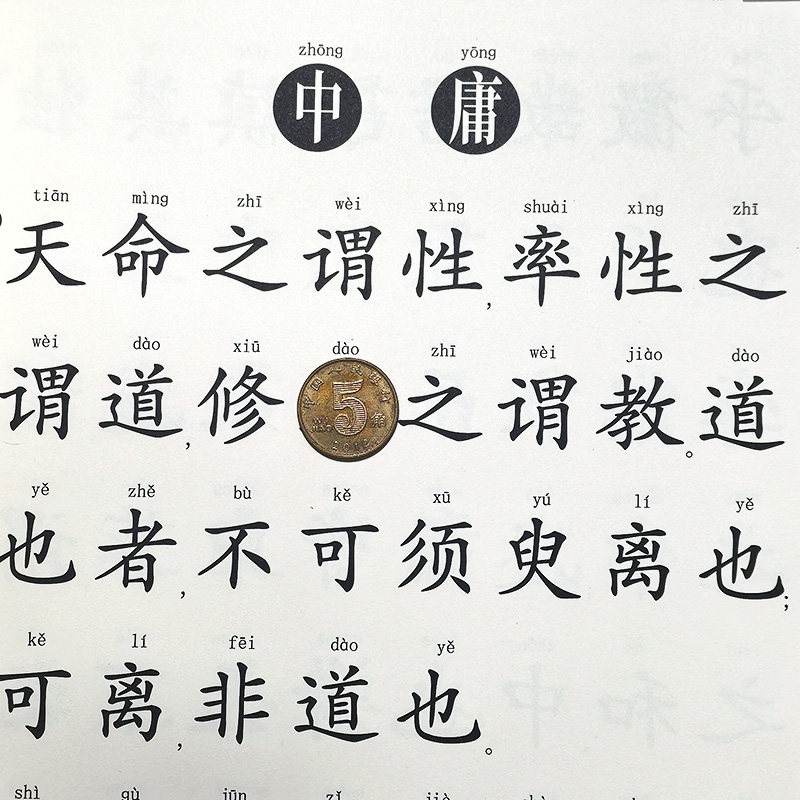 zhōng yōng
中庸
tiān mìng zhī wèi xìng shuài xìng zhī
天命之谓性,率性之
wèi dào xiū dào zhī wèi jiào dào
谓道,修之谓教。道
5
yě zhě bù kě xū yú lí yě
也者,不可须臾离也;
kě lí fēi dào yě
可离,非道也。
shì gù jūn zǐ jiè